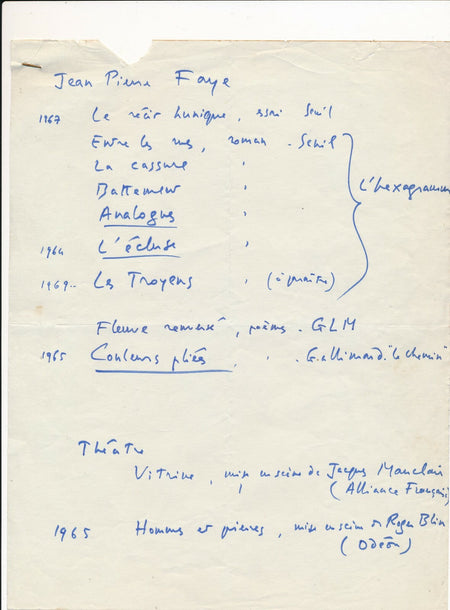 Jean Pierre Faye
1967 Le récit hunique, essai Seuil
Entre les rues, roman - Seuil
La cassure "
Battement "
Analogues "
1964 L'écluse "
L'hexagramme
1969.. Les Troyens " (à paraître)
Fleuve renversé, poèmes - GLM
1965 Couleurs pliées, " . Gallimard. "le chemin"
Théâtre
Vitrine, mise en scène de Jacques Mauclair
(Alliance Française)
1965 Hommes et pierres, mise en scène de Roger Blin
(Odéon)